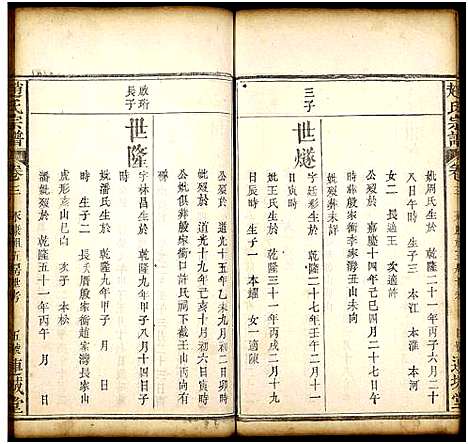 趙氏宗譜
卷三
連城堂
妣周氏生於 乾隆二十一年丙子六月十
八日午時 生子三 本江 本淮 本河
女二 長適王 次適許
公歿於 嘉慶十四年己巳三月二十八日
時葬殷家衝李家灣丑山未向
三子
世燧
字廷彩生於 乾隆二十七年壬午四月二十
日寅時
妣歿葬未詳
妣王氏生於 乾隆三十四年己丑二月十九
日辰時 生子一 本耀 女一適陳
公歿於 道光十五年乙未九月初二日卯時
妣歿於 道光十九年己亥十月初六日寅時
公妣俱葬殷家衝口許氏祠下截王山丙向
啟珩
長子
世隆
字林昌生於 乾隆九年甲子八月十四日子
妣潘氏生於 乾隆九年甲子 月 日
時 生子二 長房厝殷家衝趙家灣長家山
虎形亥山巳向 次子 本松
潘妣歿於 乾隆五十一年丙午 月 日
趙氏宗譜
卷三
五號 連城堂